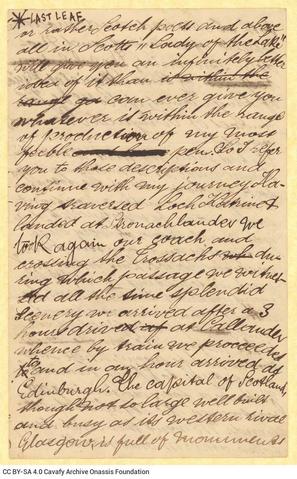 * LAST LEAF
or rather Scotch poets and above
all in Scott's "Lady of the Lake"
will give you an infinitely better
idea of it than it within the
range can ever give you
whatever is within the range
of production of my most
feeble pen. So I refer
you to those descriptions and
continue with my journey. Ha-
ving traversed Loch Katrine &
landed at Stronachlander we
took again our coach and
crossing the Trossachs du-
ring which passage we witnes-
sed all the time splendid
scenery we arrived after a 3
hours drive at Callander
whence by train we proceeded
and in an hour arrived at
Edinburgh. The capital of Scotland,
though not so large well built
and busy as its western rival
Glasgow is full of monuments
CC BY-SA 4.0 Cavafy Archive Onassis Foundation